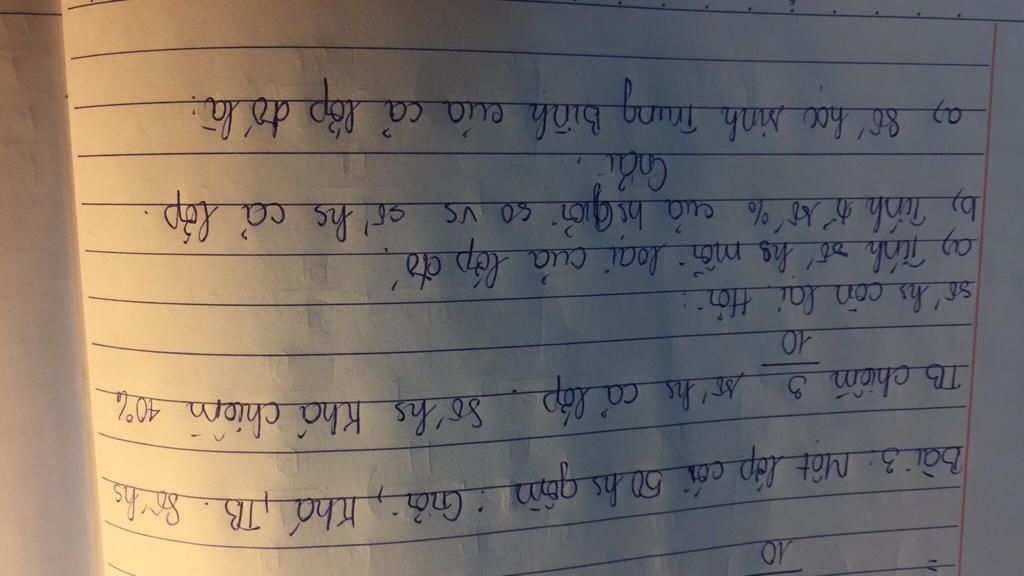 = 10
Bài 3: Một lớp có 50 hs gồm: Giỏi, Khá, TB. Số hs
TB chiếm 3/10 số hs cả lớp. Số hs Khá chiếm 40%
số hs còn lại. Hỏi:
a) Tính số hs mỗi loại của lớp đó.
b) Tính tỉ số % của hs giỏi so vs số hs cả lớp.
Giải:
a) Số học sinh Trung Bình của cả lớp đó là: